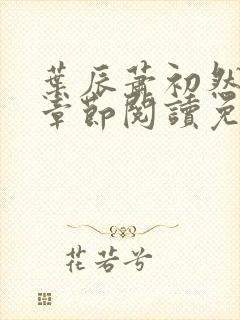 葉辰蕭初然
章節閱讀免
花若兮